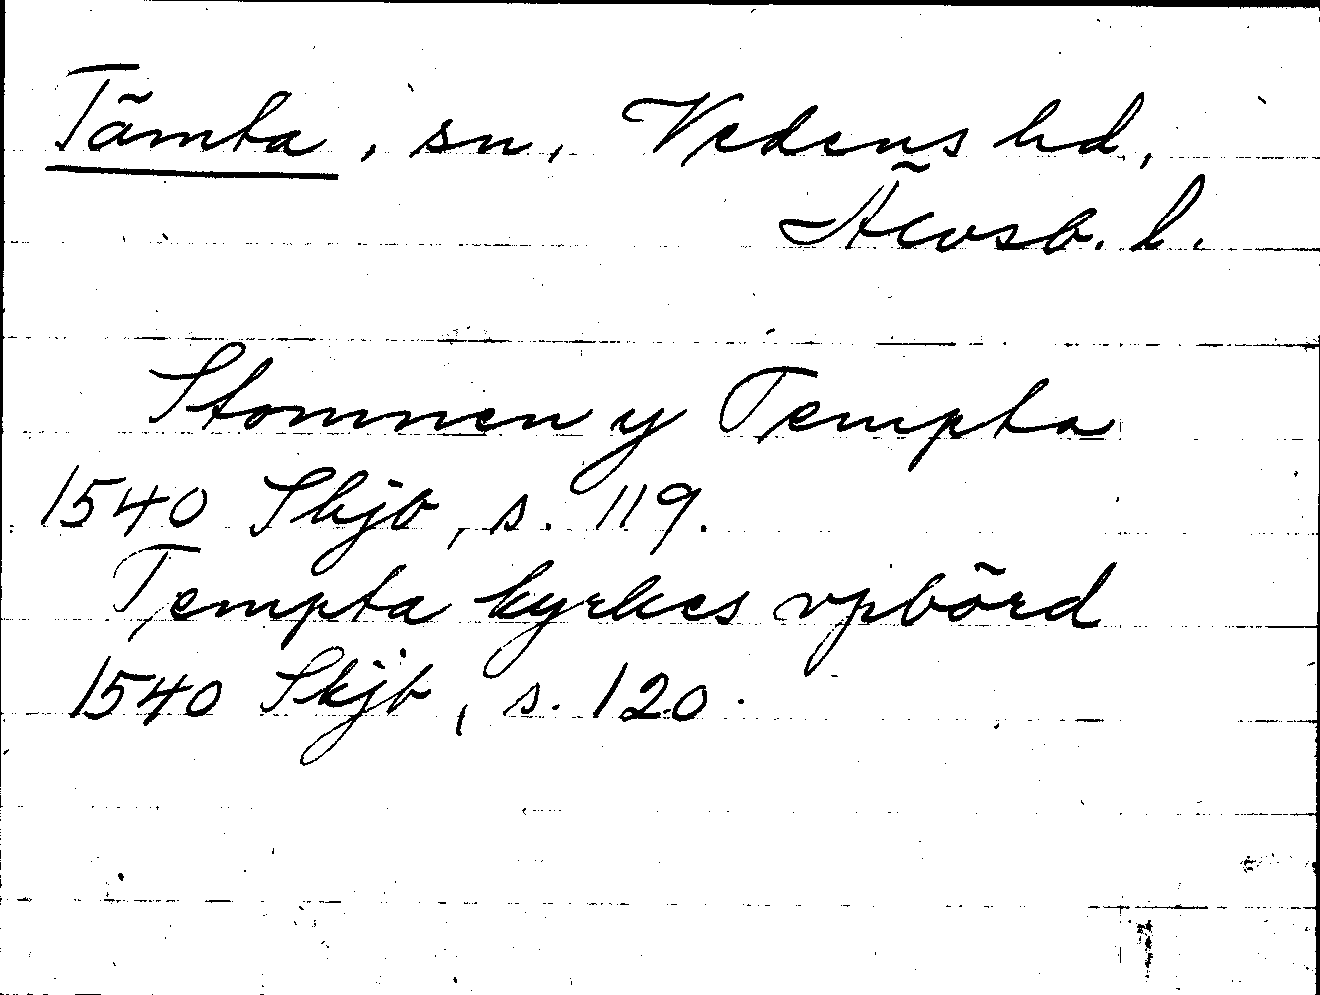 Tämta, sn, Vedens hd,
Älvsb. l.
Stommen y Tempta
1540 Skjb, s. 119.
Tempta kyrkes vpbörd
1540 Skjb, s. 120.